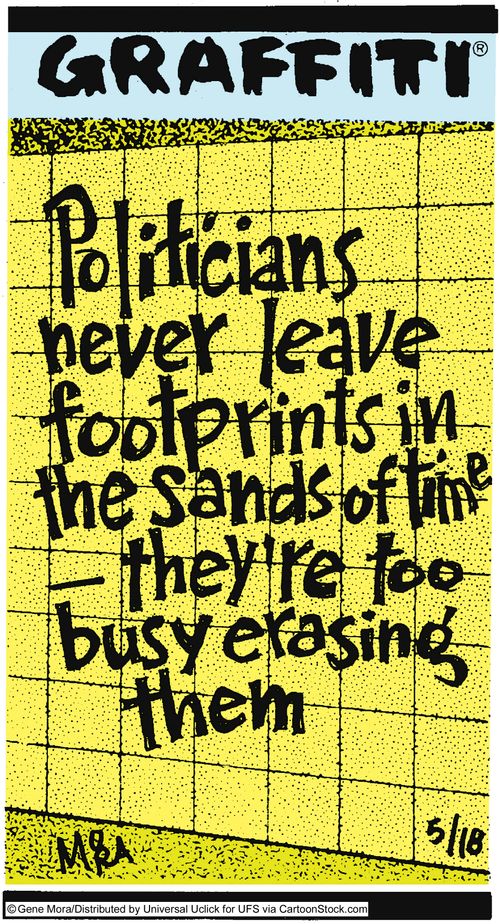 GRAFFITI®
Politicians
never leave
footprints in
the sands of time
— they're too
busy erasing
them
5/18
©Gene Mora/Distributed by Universal Uclick for UFS via CartoonStock.com